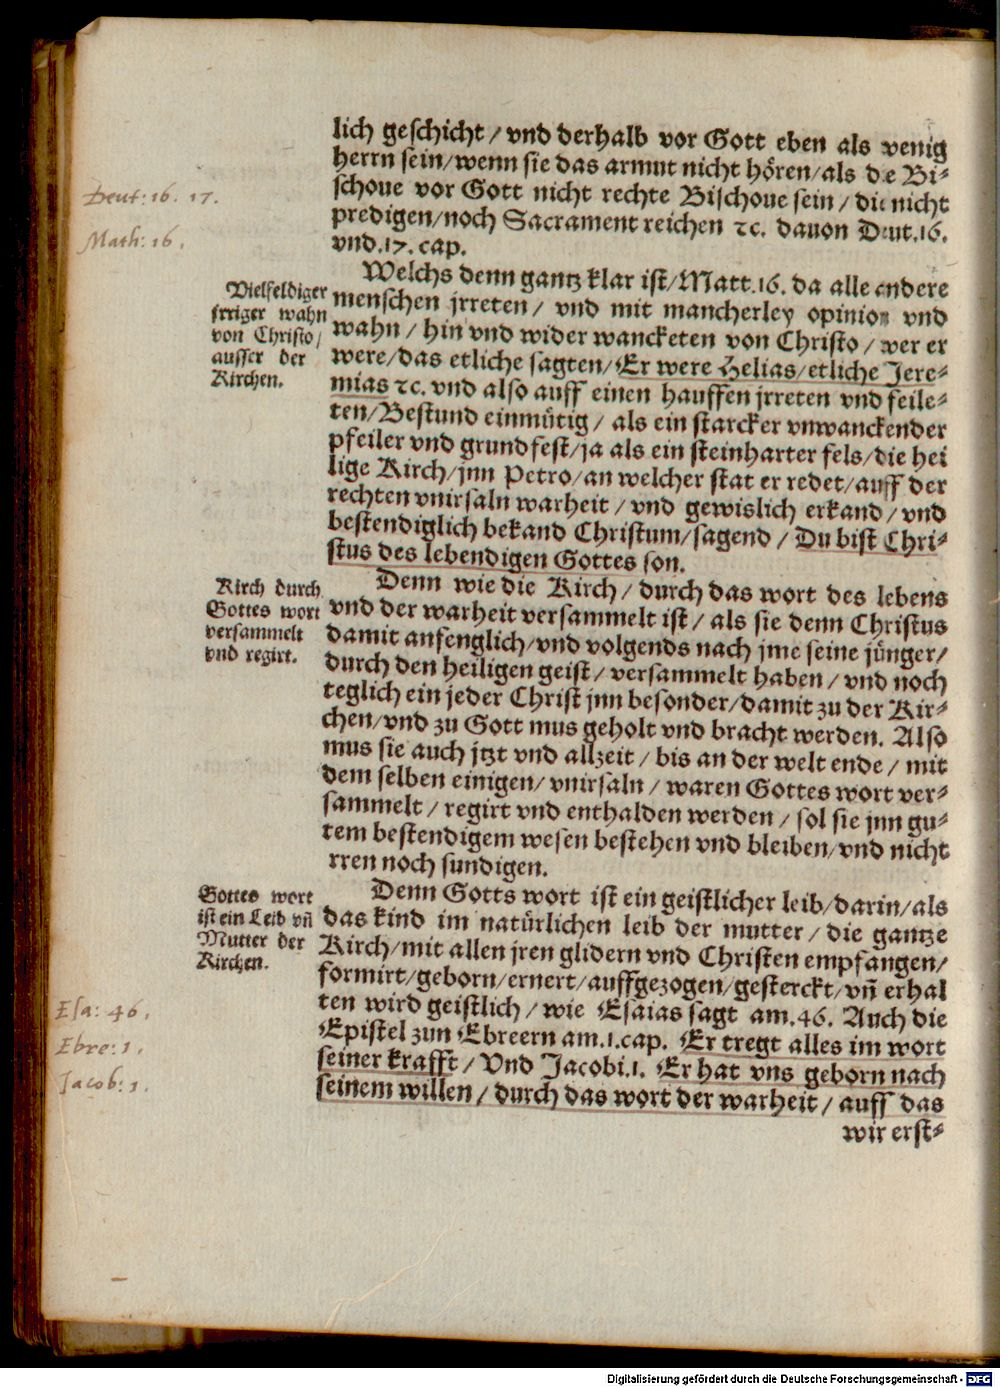 lich geschicht / vnd derhalb vor Gott eben als wenig
herrn sein/wenn sie das armut nicht hören/als die Bi⸗
schoue vor Gott nicht rechte Bischoue sein / die nicht
predigen/noch Sacrament reichen ꝛc. dauon Deut.16.
vnd.17.cap.
Deut: 16. 17.
Math: 16.
Welchs denn gantz klar ist/Matt.16. da alle andere
menschen jrreten / vnd mit mancherley opinion vnd
wahn / hin vnd wider wancketen von Christo / wer er
were/das etliche sagten/Er were Helias/etliche Jere⸗
mias ꝛc. vnd also auff einen hauffen jrreten vnd feile⸗
ten/Bestund einmütig / als ein starcker vnwanckender
pfeiler vnd grundfest/ja als ein steinharter fels/die hei
lige Kirch/jnn Petro/an welcher stat er redet/auff der
rechten vnirsaln warheit / vnd gewislich erkand / vnd
bestendiglich bekand Christum/sagend / Du bist Chri⸗
stus des lebendigen Gottes son.
Vielfeldiger
jrriger wahn
von Christo/
ausser der
Kirchen.
Denn wie die Kirch / durch das wort des lebens
vnd der warheit versammelt ist / als sie denn Christus
damit anfenglich/vnd volgends nach jme seine jünger/
durch den heiligen geist / versammelt haben / vnd noch
teglich ein jeder Christ jnn besonder/damit zu der Kir⸗
chen/vnd zu Gott mus geholt vnd bracht werden. Also
mus sie auch jtzt vnd allzeit / bis an der welt ende / mit
dem selben einigen/ vnirsaln / waren Gottes wort ver⸗
sammelt / regirt vnd enthalden werden / sol sie jnn gu⸗
tem bestendigem wesen bestehen vnd bleiben/vnd nicht
rren noch sundigen.
Kirch durch
Gottes wort
versammelt
vnd regirt.
Denn Gotts wort ist ein geistlicher leib/darin/als
das kind im natürlichen leib der mutter / die gantze
Kirch/mit allen jren glidern vnd Christen empfangen/
formirt/geborn/ernert/auffgezogen/gesterckt/vñ erhal
ten wird geistlich / wie Esaias sagt am.46. Auch die
Epistel zun Ebreern am.1.cap. Er tregt alles im wort
seiner krafft / Vnd Jacobi.1. Er hat vns geborn nach
seinem willen / durch das wort der warheit / auff das
wir erst⸗
Gottes wort
ist ein Leib vñ
Mutter der
Kirchen.
Esa: 46.
Ebre: 1.
Jacob: 1.
Digitalisierung gefördert durch die Deutsche Forschungsgemeinschaft - DFG